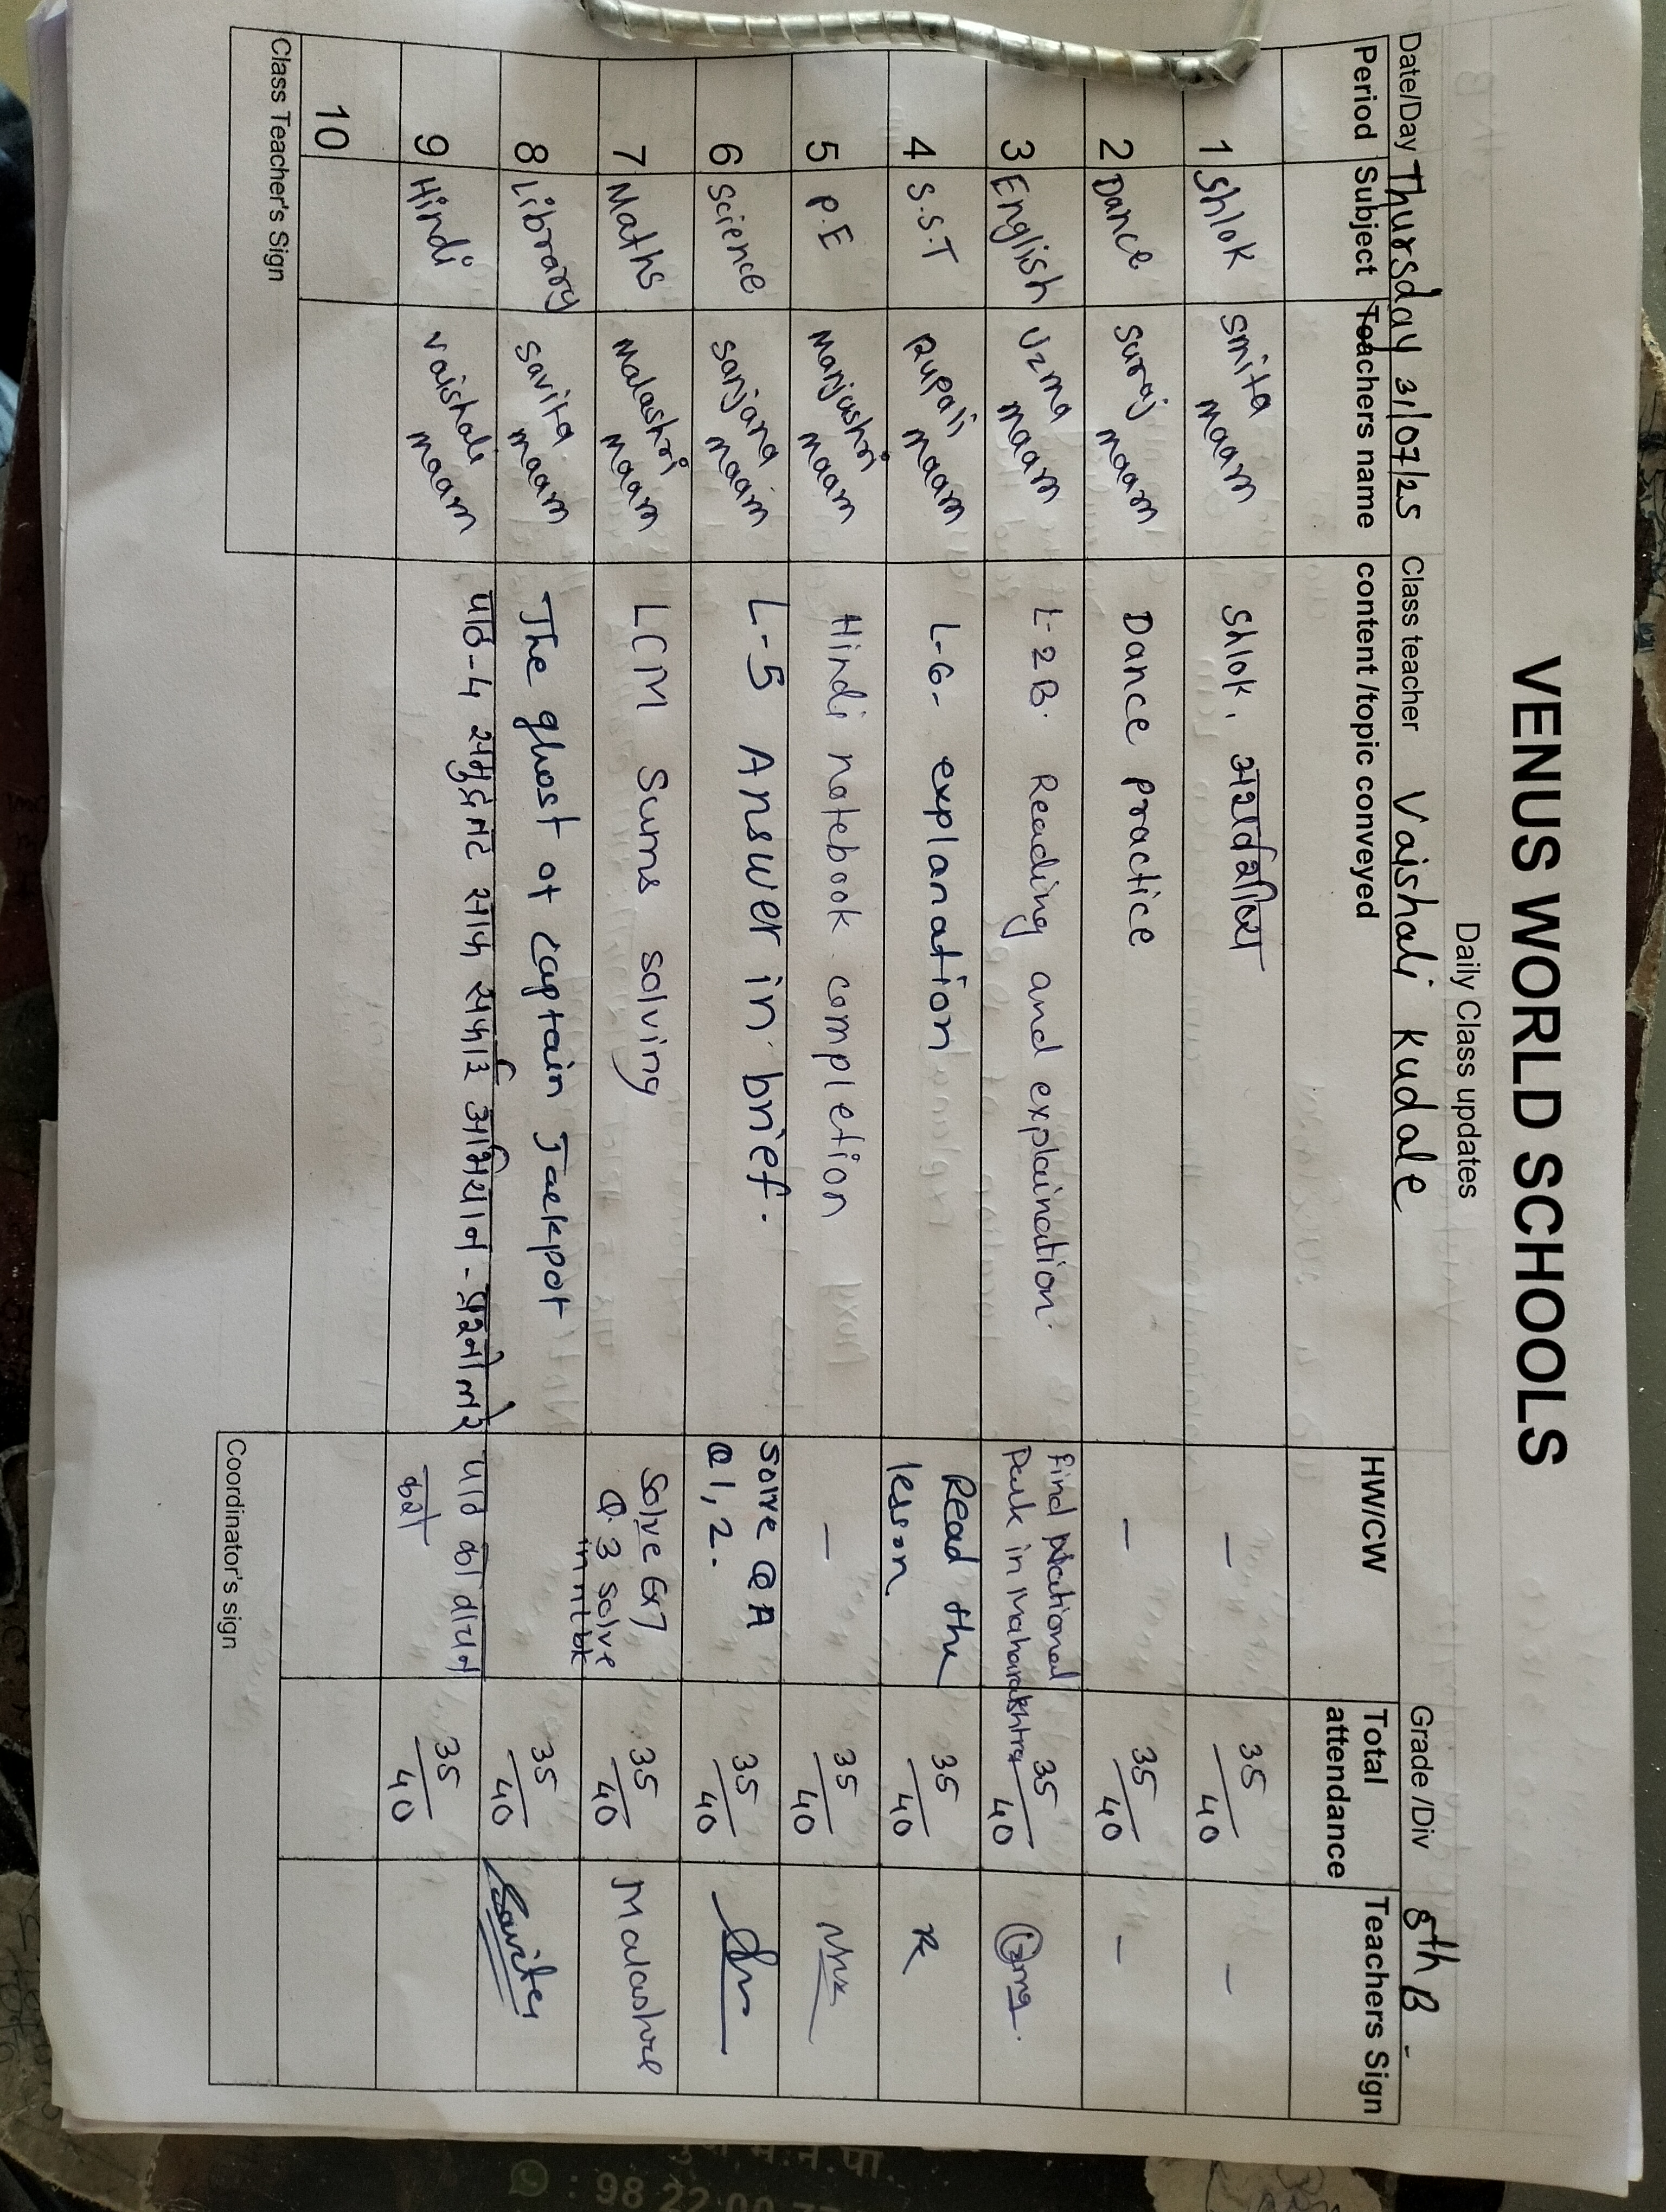 VENUS WORLD SCHOOLS
Daily Class updates
Date/Day Thursday 31/07/25 Class teacher Vaishali Kudale Grade /Div 5th B
Period Subject Teachers name content /topic conveyed HW/CW Total attendance Teachers Sign
1 Shlok Smita maam Shlok, - 35/40 -
2 Dance Suraj maam Dance practice - 35/40 -
3 English Uzma maam L-2B. Reading and explaination. Find National Park in Maharakshtra 35/40 Uzma.
4 S.S.T Rupali maam L-6- explanation Read the lesson. 35/40 R
5 P.E Manjushri maam Hindi notebook completion - 35/40
6 Science Sanjana maam L-5 Answer in brief. Solve Q A Q 1, 2. 35/40
7 Maths Malashri maam LCM Sums solving Solve Ex 7 Q. 3 solve in nt bk 35/40 Malashree
8 Library Savita maam The ghost of Captain Jackpot 35/40 Savita
9 Hindi Vaishali maam पाठ-4 समुद्र तट साफ सफाई अभियान - प्रश्नोत्तरे पाठ का वाचन करो 35/40
10
Class Teacher's Sign Coordinator's sign
: 98 22 00